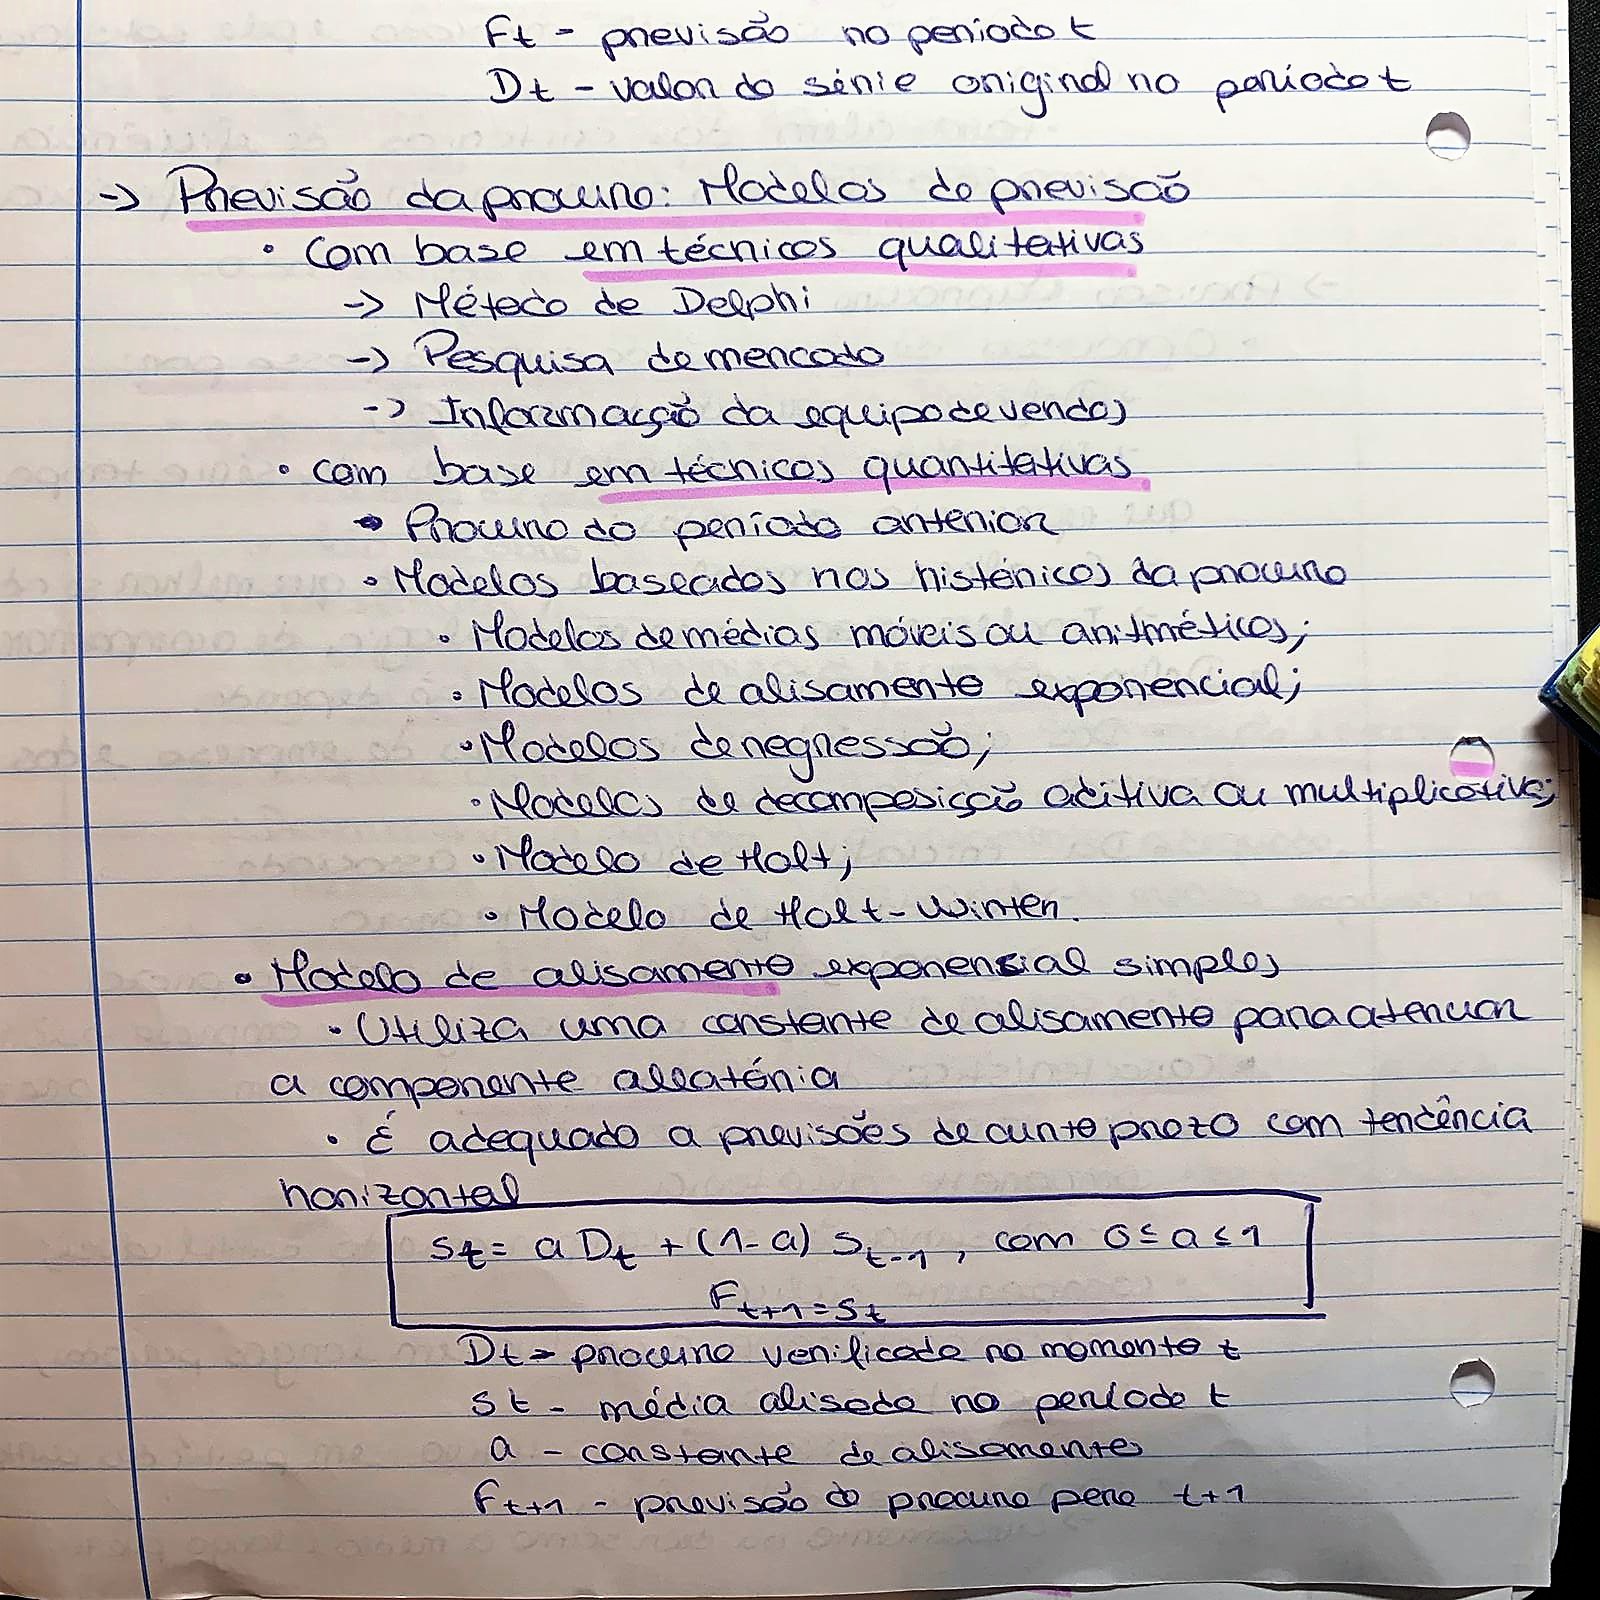 Ft - previsão no período t
Dt - valor da série original no período t
-> Previsão da procura: Modelos de previsão
• Com base em técnicas qualitativas
-> Método de Delphi
-> Pesquisa de mercado
-> Informação da equipa de vendas
• com base em técnicas quantitativas
• Procura do período anterior
• Modelos baseados nos históricos da procura
• Modelos de médias móveis ou aritméticas;
• Modelos de alisamento exponencial;
• Modelos de regressão;
• Modelos de decomposição aditiva ou multiplicativa;
• Modelo de Holt;
• Modelo de Holt-Winter.
• Modelo de alisamento exponencial simples
• Utiliza uma constante de alisamento para atenuar
a componente aleatória
• É adequado a previsões de curto prazo com tendência
horizontal
St = a Dt + (1-a) St-1, com 0 ≤ a ≤ 1
Ft+1 = St
Dt - procura verificada no momento t
St - média alisada no período t
a - constante de alisamento
Ft+1 - previsão da procura para t+1